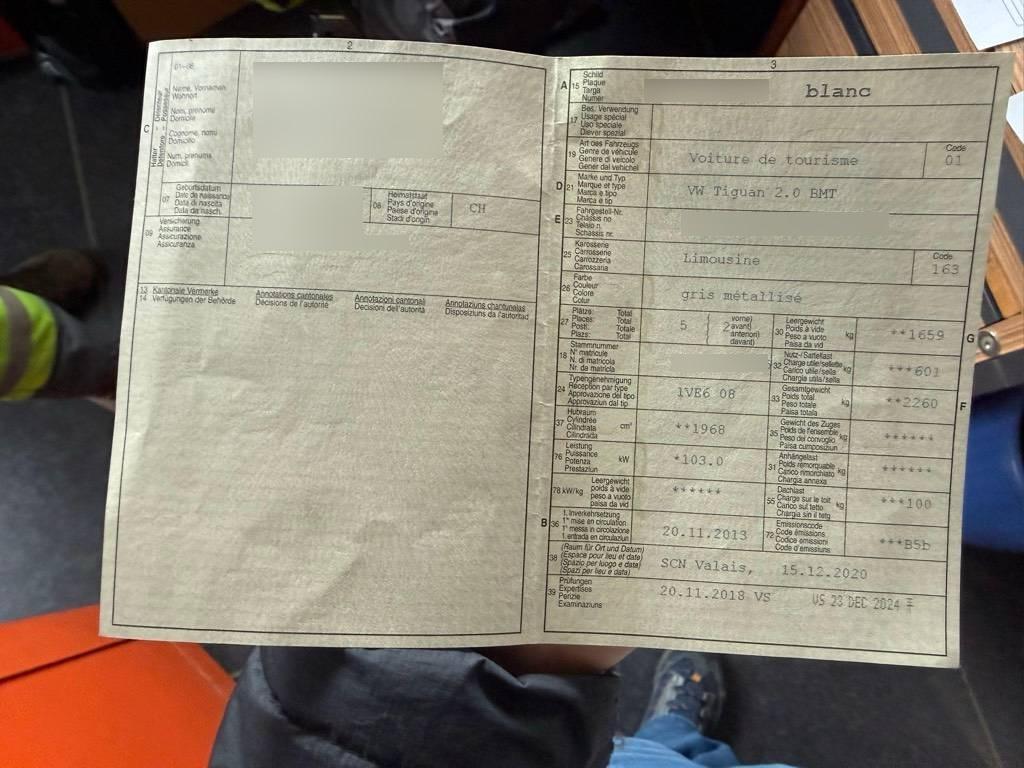 2
01-06
Name, Vornamen
Wohnort
Nom, prénoms
Domicile
Cognome, nomi
Domicilio
Num, prenums
Domicil
C
Halter
Détenteur
Detentore
Possessur
07
Geburtsdatum
Date de naissance
Data di nascita
Data da nasch.
08
Heimatstaat
Pays d'origine
Paese d'origine
Stadi d'origin
CH
09
Versicherung
Assurance
Assicurazione
Assicuranza
13 Kantonale Vermerke
14 Verfügungen der Behörde
Annotations cantonales
Décisions de l'autorité
Annotazioni cantonali
Decisioni dell'autorità
Annotaziuns chantunalas
Disposiziuns da l'autoritad
3
A 15
Schild
Plaque
Targa
Numer
blanc
17
Bes. Verwendung
Usage spécial
Uso speciale
Diever spezial
19
Art des Fahrzeugs
Genre de véhicule
Genere di veicolo
Gener dal vehichel
Voiture de tourisme
Code
01
D 21
Marke und Typ
Marque et type
Marca e tipo
Marca e tip
VW Tiguan 2.0 BMT
E 23
Fahrgestell-Nr.
Châssis no
Telaio n.
Schassis nr.
25
Karosserie
Carrosserie
Carrozzeria
Carossaria
Limousine
Code
163
26
Farbe
Couleur
Colore
Colur
gris métallisé
27
Plätze: Total
Places: Total
Posti: Totale
Plazs: Total
5
2
vorne)
avant)
anteriori)
davant)
30
Leergewicht
Poids à vide
Peso a vuoto
Paisa da vid
kg
**1659
G
18
Stammnummer
N° matricule
N. di matricola
Nr. da matricla
32
Nutz-/Sattellast
Charge utile/sellette
Carico utile/sella
Chargia utila/sella
kg
***601
24
Typengenehmigung
Réception par type
Approvazione del tipo
Approvaziun dal tip
1VE6 08
33
Gesamtgewicht
Poids total
Peso totale
Paisa totala
kg
**2260
F
37
Hubraum
Cylindrée
Cilindrata
Cilindrada
cm³
**1968
35
Gewicht des Zuges
Poids de l'ensemble
Peso del convoglio
Paisa cumposiziun
kg
******
76
Leistung
Puissance
Potenza
Prestaziun
kW
*103.0
31
Anhängelast
Poids remorquable
Carico rimorchiato
Chargia annexa
kg
******
78 kW/kg
Leergewicht
poids à vide
peso a vuoto
paisa da vid
******
55
Dachlast
Charge sur le toit
Carico sul tetto
Chargia sin il tetg
kg
***100
B 36
1. Inverkehrsetzung
1re mise en circulation
1a messa in circolazione
1. entrada en circulaziun
20.11.2013
72
Emissionscode
Code émissions
Codice emissioni
Code d'emissiuns
***B5b
38
(Raum für Ort und Datum)
(Espace pour lieu et date)
(Spazio per luogo e data)
(Spazi per lieu e data)
SCN Valais, 15.12.2020
39
Prüfungen
Expertises
Perizie
Examinaziuns
20.11.2018 VS
VS 23 DEC 2024